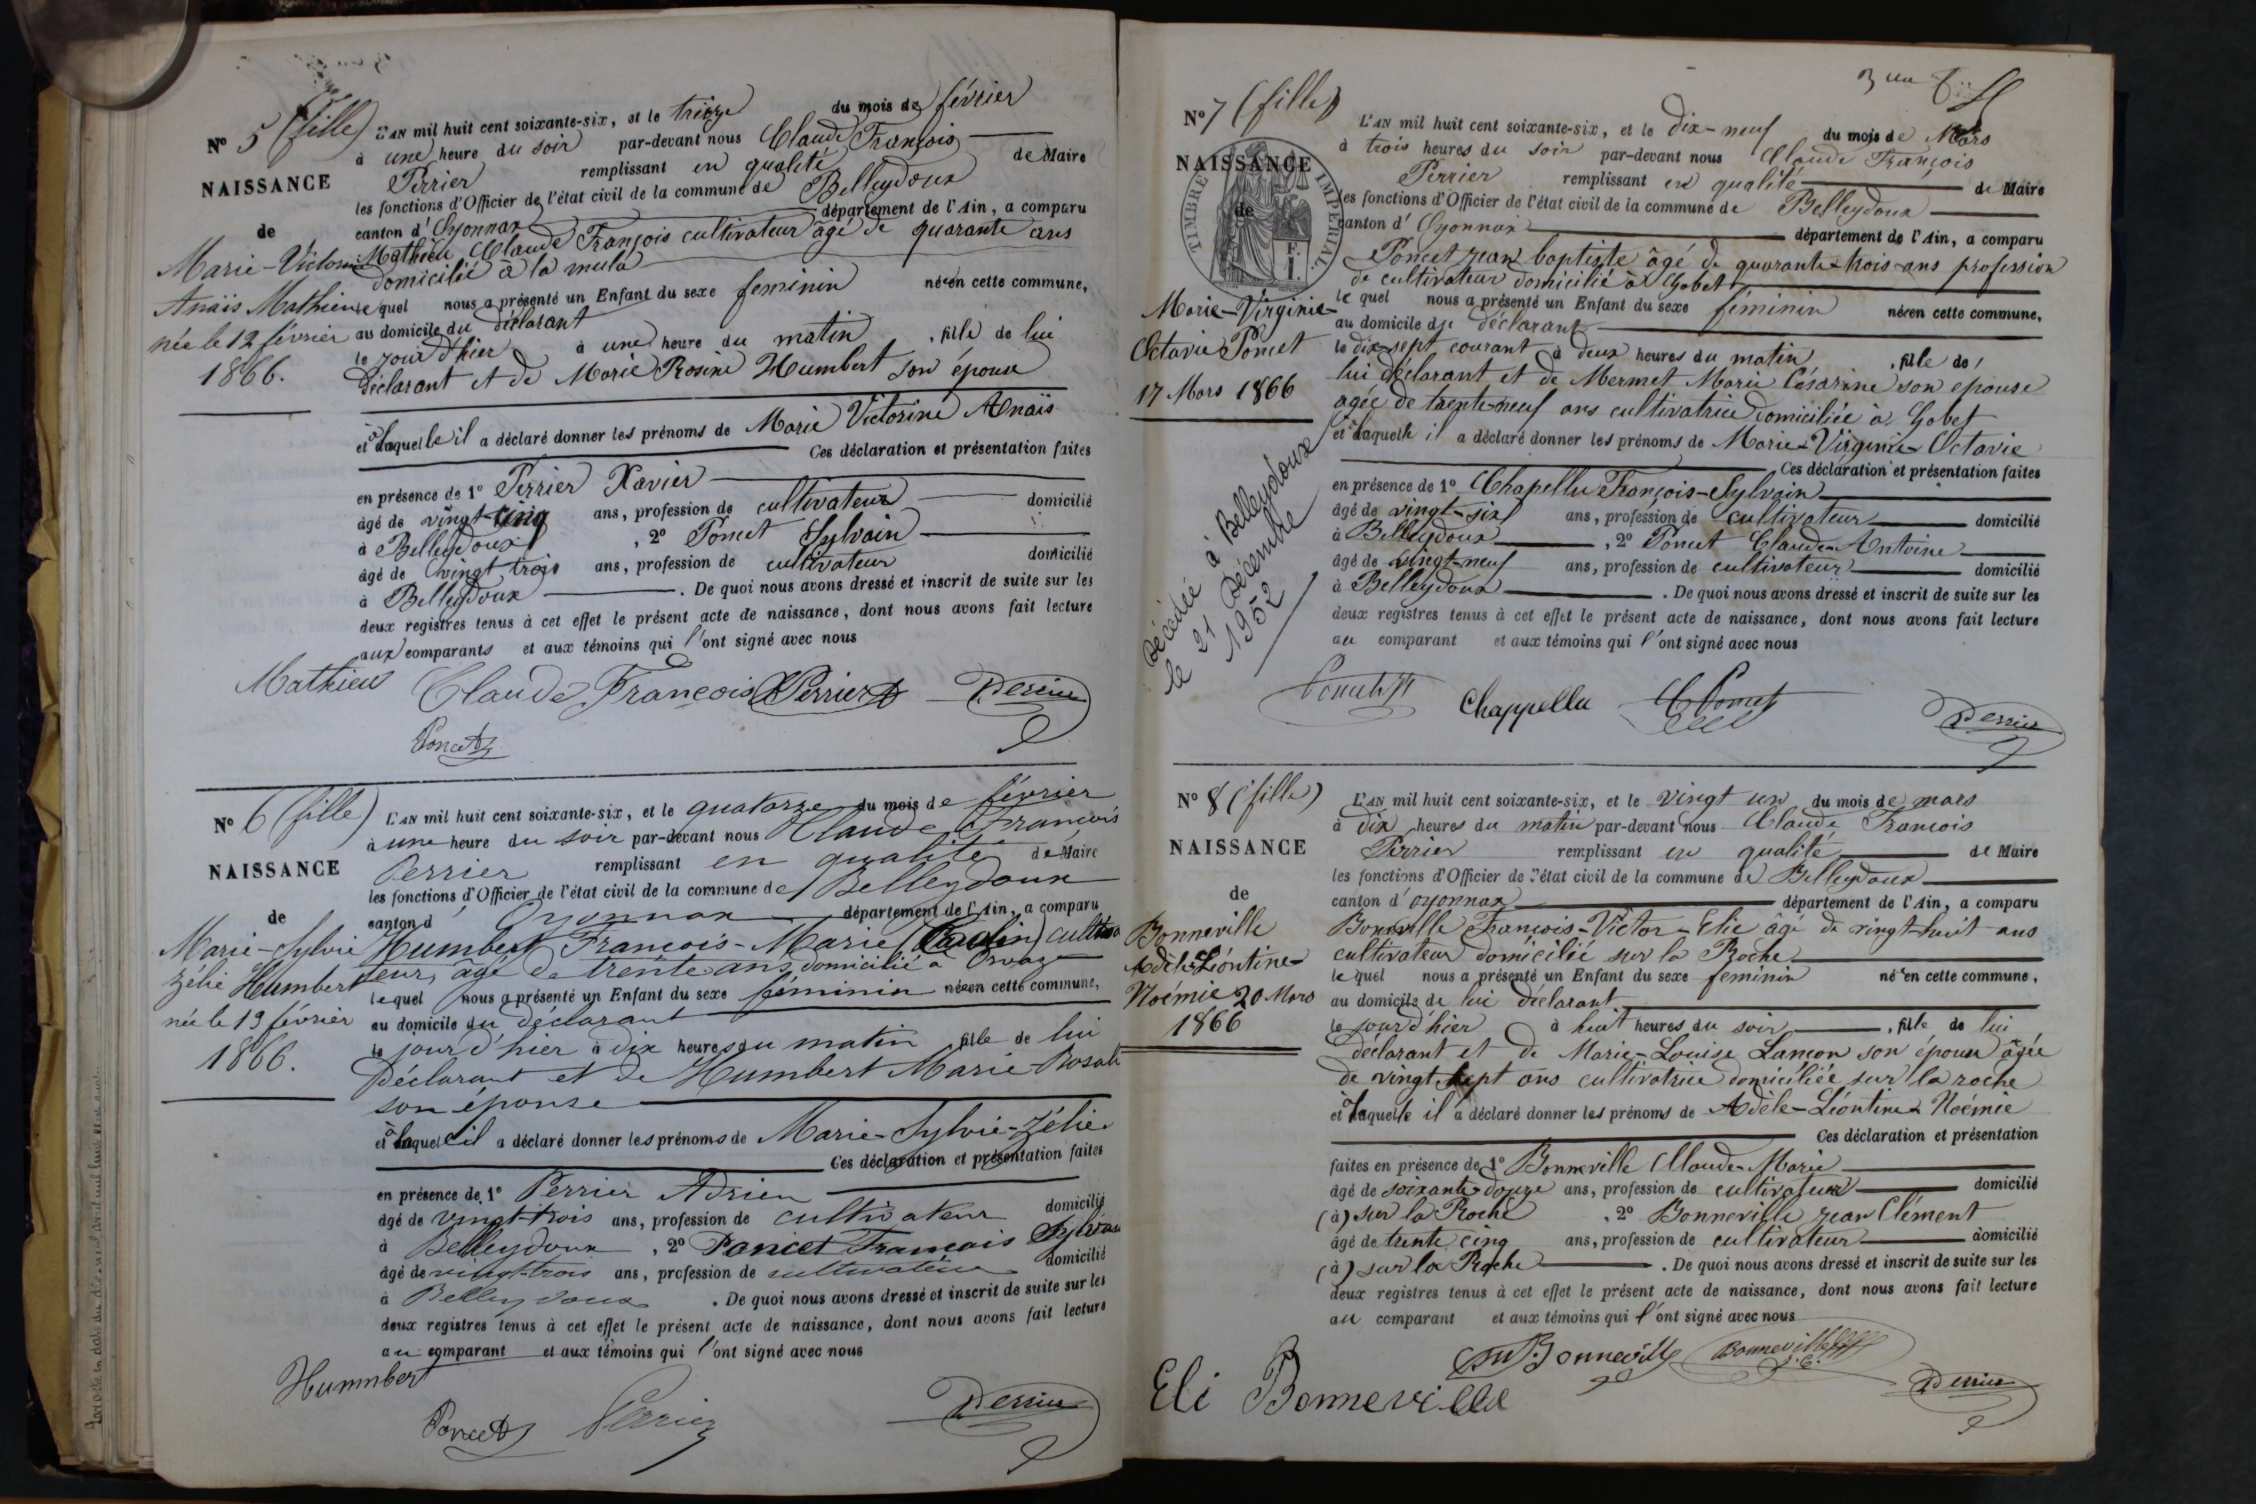 N° 5 (fille)
NAISSANCE
de
Marie-Victorine
Anaïs Mathieu
née le 12 février
1866.
L'AN mil huit cent soixante-six, et le treize du mois de février
à une heure du soir par-devant nous Claude François
Perrier remplissant en qualité de Maire
les fonctions d'Officier de l'état civil de la commune de Belleydoux
canton d'Oyonnax département de l'Ain, a comparu
Mathieu Claude François cultivateur âgé de quarante ans
domicilié à la
lequel nous a présenté un Enfant du sexe féminin né en cette commune,
au domicile du déclarant
le jour d'hier à une heure du matin, fille de lui
déclarant et de Marie Rosine Humbert son épouse
et à laquelle il a déclaré donner les prénoms de Marie Victorine Anaïs
Ces déclaration et présentation faites
en présence de 1° Perrier Xavier
âgé de vingt-cinq ans, profession de cultivateur domicilié
à Belleydoux, 2° Poncet Sylvain
âgé de vingt trois ans, profession de cultivateur domicilié
à Belleydoux. De quoi nous avons dressé et inscrit de suite sur les
deux registres tenus à cet effet le présent acte de naissance, dont nous avons fait lecture
aux comparants et aux témoins qui l'ont signé avec nous
Mathieu Claude François Perrier Perrier
Poncet
N° 6 (fille)
NAISSANCE
de
Marie-Sylvie
Zélie Humbert
née le 13 février
1866.
L'AN mil huit cent soixante-six, et le quatorze du mois de février
à une heure du soir par-devant nous Claude François
Perrier remplissant en qualité de Maire
les fonctions d'Officier de l'état civil de la commune de Belleydoux
canton d'Oyonnax département de l'Ain, a comparu
Humbert François-Marie cultiva
teur, âgé de trente ans, domicilié à Orvaz
lequel nous a présenté un Enfant du sexe féminin née en cette commune,
au domicile du déclarant
le jour d'hier à dix heures du matin fille de lui
Déclarant et de Humbert Marie-Rosali
son épouse
et à laquelle il a déclaré donner les prénoms de Marie-Sylvie-Zélie
Ces déclaration et présentation faites
en présence de 1° Perrier Adrien
âgé de vingt-trois ans, profession de cultivateur domicilié
à Belleydoux, 2° Poncet François Sylvain
âgé de vingt-trois ans, profession de cultivateur domicilié
à Belleydoux. De quoi nous avons dressé et inscrit de suite sur les
deux registres tenus à cet effet le présent acte de naissance, dont nous avons fait lecture
au comparant et aux témoins qui l'ont signé avec nous
Hummbert
Poncet Perrier Perrier
N° 7 (fille)
NAISSANCE
de
TIMBRE IMPERIAL
Marie-Virginie-
Octavie Poncet
17 Mars 1866
Décédée à Belleydoux
le 21 Décembre
1952
L'AN mil huit cent soixante-six, et le dix-neuf du mois de Mars
à trois heures du soir par-devant nous Claude François
Perrier remplissant en qualité de Maire
les fonctions d'Officier de l'état civil de la commune de Belleydoux
canton d'Oyonnax département de l'Ain, a comparu
Poncet Jean baptiste âgé de quarante-trois ans profession
de cultivateur domicilié à Gobet
lequel nous a présenté un Enfant du sexe féminin née en cette commune,
au domicile du déclarant
le dix-sept courant à deux heures du matin, fille de
lui déclarant et de Mermet Marie Césarine son épouse
agée de trente-neuf ans cultivatrice domiciliée à Gobet
et à laquelle il a déclaré donner les prénoms de Marie-Virginie-Octavie
Ces déclaration et présentation faites
en présence de 1° Chapellu François-Sylvain
âgé de vingt-six ans, profession de cultivateur domicilié
à Belleydoux, 2° Poncet Claude-Antoine
âgé de vingt-neuf ans, profession de cultivateur domicilié
à Belleydoux. De quoi nous avons dressé et inscrit de suite sur les
deux registres tenus à cet effet le présent acte de naissance, dont nous avons fait lecture
au comparant et aux témoins qui l'ont signé avec nous
Chappellu Poncet Perrier
N° 8 (fille)
NAISSANCE
de
Bonneville
Adèle-Léontine-
Noémie 20 Mars
1866
L'AN mil huit cent soixante-six, et le vingt un du mois de mars
à dix heures du matin par-devant nous Claude François
Perrier remplissant en qualité de Maire
les fonctions d'Officier de l'état civil de la commune de Belleydoux
canton d'oyonnax département de l'Ain, a comparu
Bonneville François-Victor-Elie âgé de vingt-huit ans
cultivateur domicilié sur la Roche
lequel nous a présenté un Enfant du sexe féminin née en cette commune,
au domicile de lui déclarant
le jour d'hier à huit heures du soir, fille de lui
déclarant et de Marie-Louise Lançon son épouse âgée
de vingt sept ans cultivatrice domiciliée sur la roche
et à laquelle il a déclaré donner les prénoms de Adèle-Léontine-Noémie
Ces déclaration et présentation
faites en présence de 1° Bonneville Claude-Marie
âgé de soixante-douze ans, profession de cultivateur domicilié
(à) sur la Roche, 2° Bonneville Jean Clément
âgé de trente cinq ans, profession de cultivateur domicilié
(à) sur la Roche. De quoi nous avons dressé et inscrit de suite sur les
deux registres tenus à cet effet le présent acte de naissance, dont nous avons fait lecture
au comparant et aux témoins qui l'ont signé avec nous
Bonneville Bonneville
Eli Bonneville Perrier